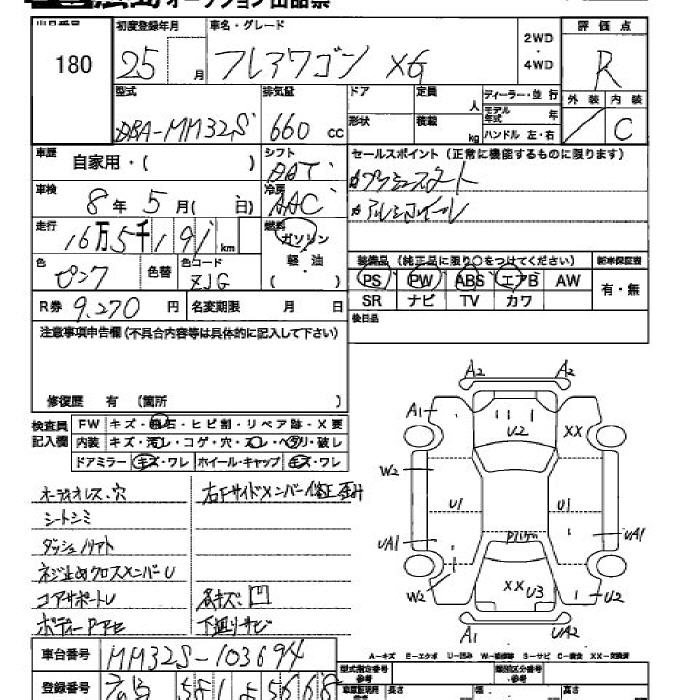 オークション出品票
出品番号 初度登録年月 車名・グレード 2WD・4WD 評価点
180 25 月 フレアワゴン XG R
型式 排気量 ドア 定員 人 ディーラー・並行 外装 内装
DBA-MM32S 660 cc 形状 積載 kg モデル年式 年 ハンドル 左・右 C
車歴 自家用・( ) シフト AAT セールスポイント (正常に機能するものに限ります)
車検 8年 5月( 日) 冷房 AAC プッシュスタート
走行 16万5千191km 燃料 ガソリン アルミホイール
色 ピンク 色替 色コード ZJG 軽・油 ( ) 装備品 (純正品に限り○をつけてください) 新車保証書
PS PW ABS エアB AW 有・無
R券 9,270 円 名変期限 月 日 SR ナビ TV カワ
注意事項申告欄(不具合内容等は具体的に記入して下さい) 後日品
修復歴 有 (箇所 )
検査員記入欄 FW キズ・飛石・ヒビ割・リペア跡・X要
内装 キズ・汚レ・コゲ・穴・スレ・ヘタリ・破レ
ドアミラー キズ・ワレ ホイール・キャップ キズ・ワレ
A2 A2
A1 U2 XX
W2
U1 U1
UA1 UA1
W2 XX U3 U2
A1 UA2
オーディオレス・穴 右Fサイドメンバー修正歪み
シートシミ
ダッシュノリアト
ネジ止めクロスメンバーU
コアサポートU 各キズ凹
下廻りサビ
A-キズ E-エクボ U-凹み W-補修跡 S-サビ C-腐食 XX-交換済
車台番号 MM32S-103694
登録番号 581 5668
型式指定番号 参考 類別区分番号 参考
長さ 幅 高さ